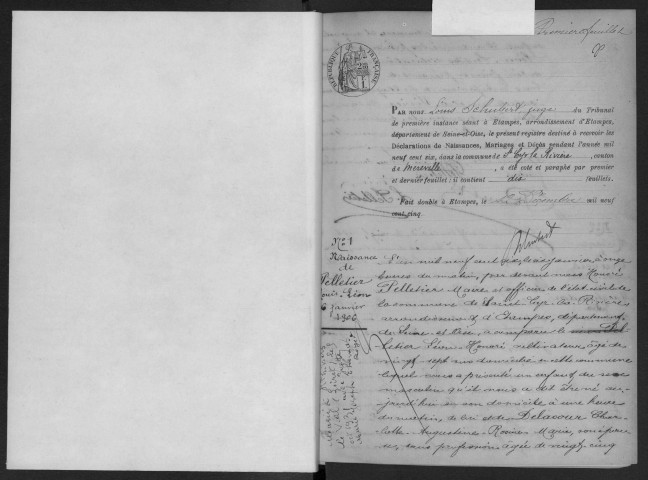 Premier feuillet
RÉPUBLIQUE FRANÇAISE
PAR nous Louis Schubert juge du Tribunal
de première instance séant à Etampes, arrondissement d'Etampes,
département de Seine-et-Oise, le présent registre destiné à recevoir les
Déclarations de Naissances, Mariages et Décès pendant l'année mil
neuf cent six, dans la commune de St Cyr la Rivière, canton
de Méréville, a été coté et paraphé par premier
et dernier feuillet: il contient dix feuillets.
Fait double à Etampes, le Décembre mil neuf
cent cinq.
Schubert
N° 1
Naissance
de
Pelletier
Louis Léon
6 janvier
1906
L'an mil neuf cent six, le six janvier à onze
heures du matin, par devant nous Honoré
Pelletier Maire et officier de l'état civil de
la commune de Saint Cyr la Rivière
arrondissement d'Etampes, département
de Seine et Oise, a comparu le Pel-
letier Léon Honoré cultivateur, âgé de
vingt sept ans domicilié en cette commune
lequel nous a présenté un enfant du sexe
masculin qu'il nous a dit être né au-
jourd'hui en son domicile à une heure
du matin, de lui et de Delacour Char-
lotte Augustine Marie, son épou-
se, sans profession âgée de vingt cinq